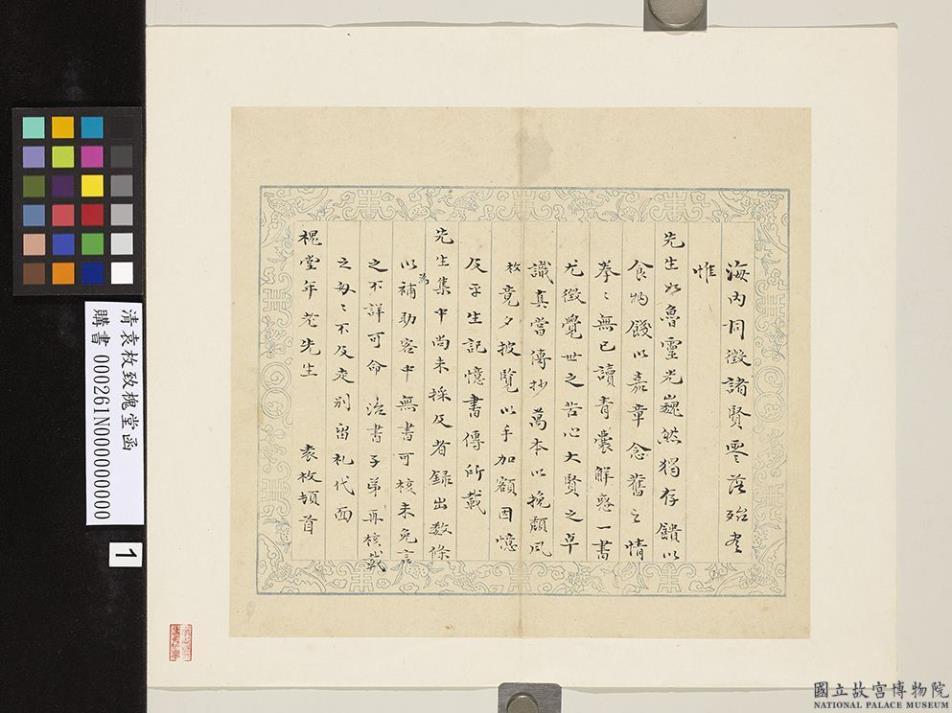 海內同徵諸賢零落殆盡
惟
先生如魯靈光巍然獨存饋以
食物餽以嘉章念舊之情
拳〻無已讀青囊解惑一書
尤徵覺世之苦心大賢之卓
識真當傳抄萬本以挽頹風
枚竟夕披覽以手加額因憶
及平生記憶書傳所載
先生集中尚未採及者錄出數條
為
以補助客中無書可核未免言
之不詳可命 治書子弟再核載
之匆〻不及走別留札代面
槐堂年老先生 袁枚頓首
清袁枚致槐堂函
購書 000261N000000000
1
國立故宮博物院
NATIONAL PALACE MUSEUM